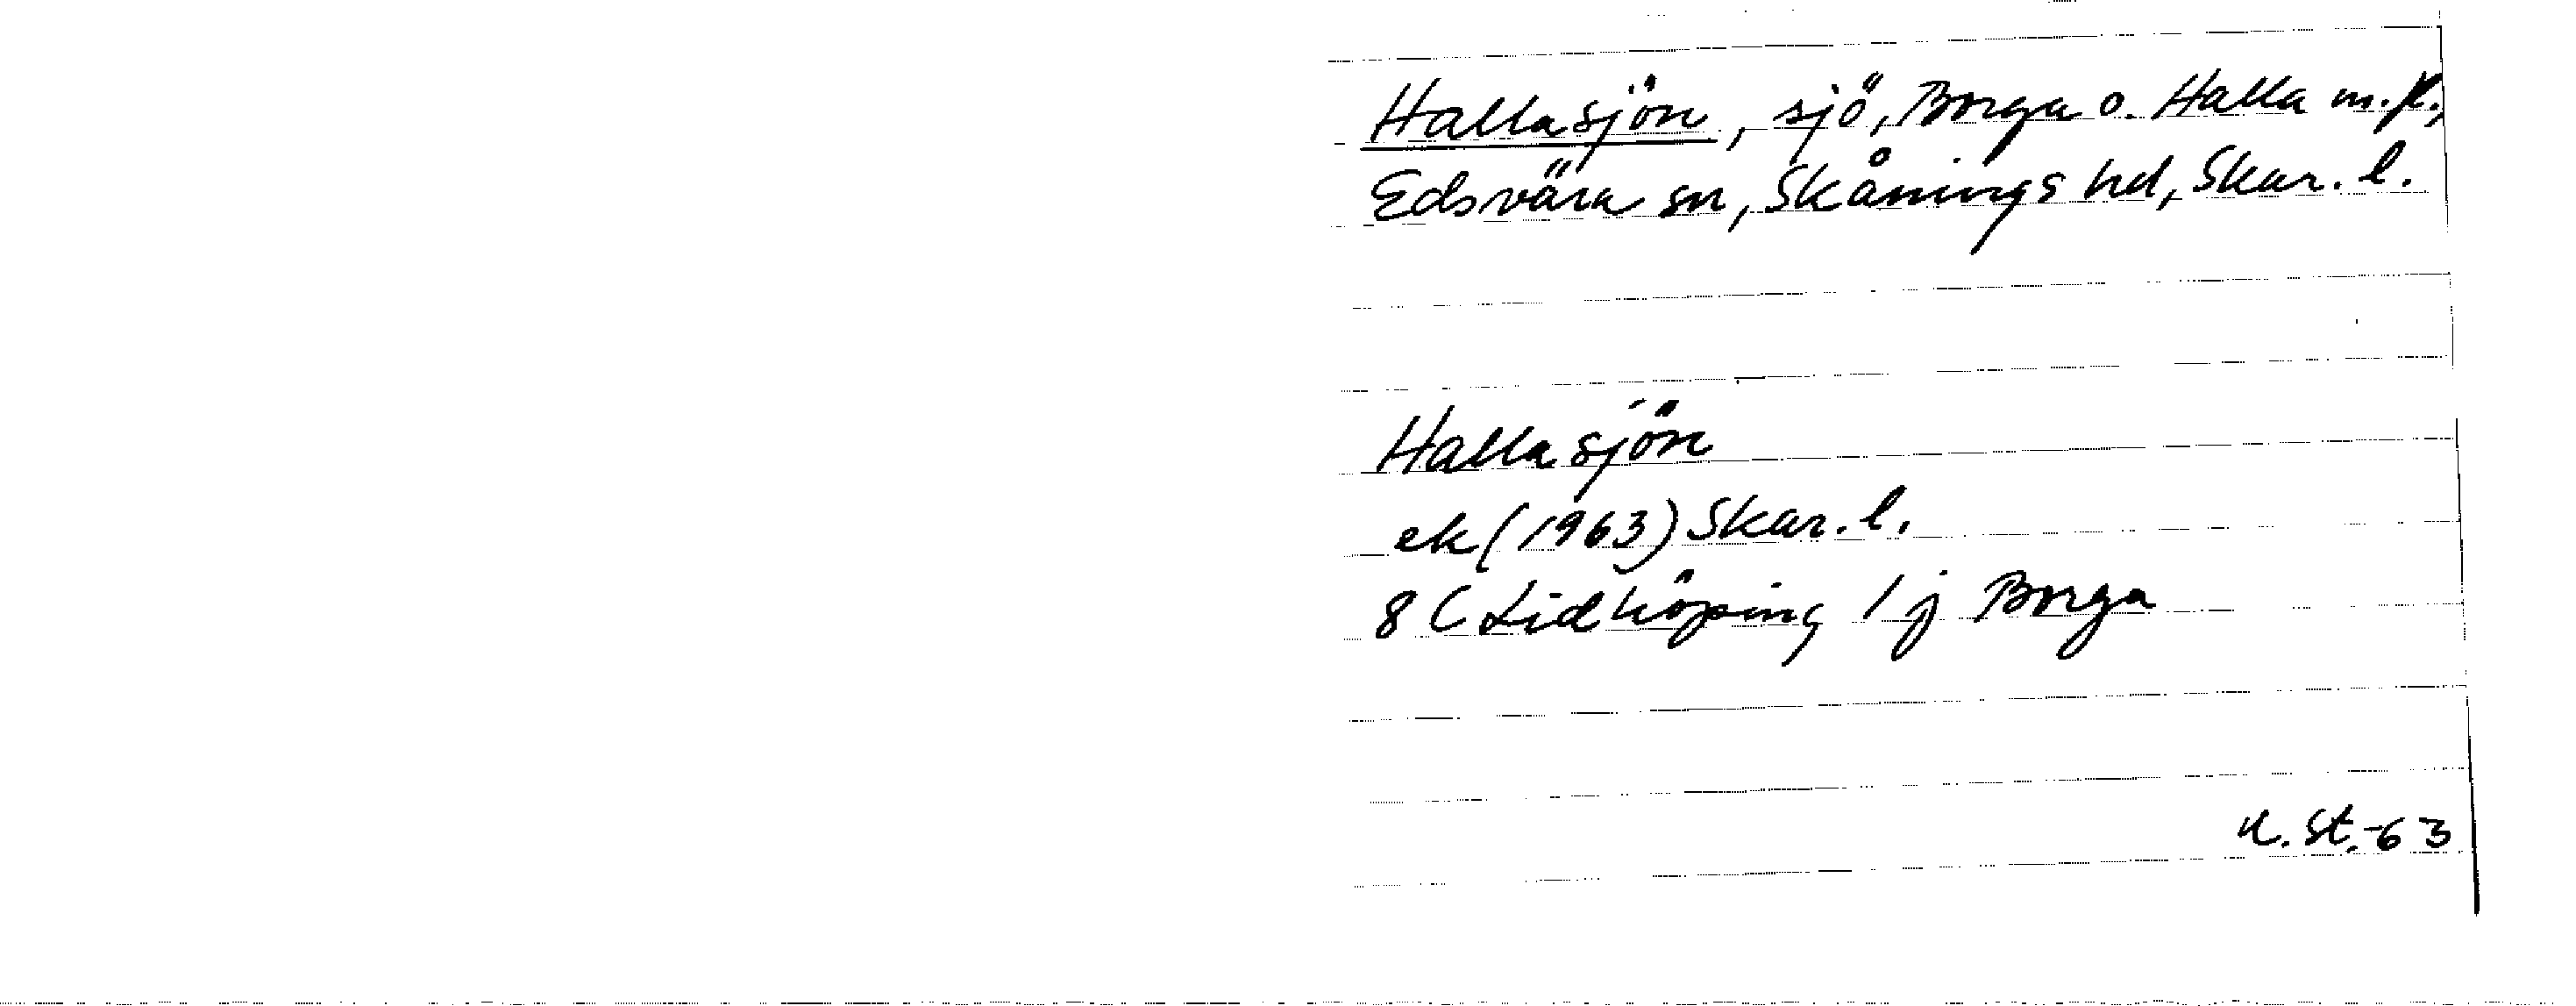 Hallasjön, sjö, Borga o. Halla m.fl.,
Edsvära sn, Skånings hd, Skar. l.
Hallasjön
ek (1963) Skar. l.
8 C Lidköping 1 j Borga
u. St. -63